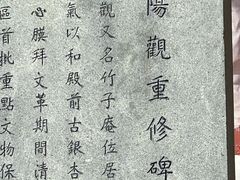 陽觀重修碑
觀又名竹子庵位居
氣以和殿前古銀杏
心膜拜文革期間清
區首批重點文物保